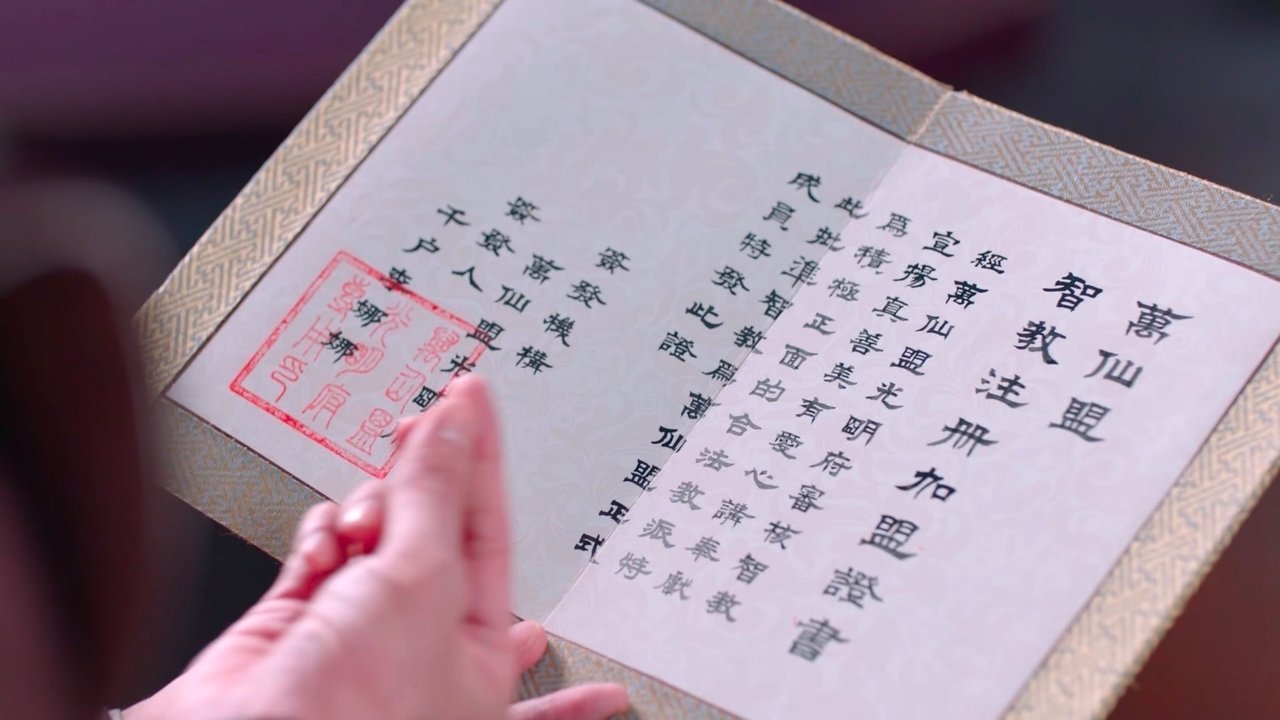 萬仙盟
智教注冊加盟證書
經萬仙盟光明府審核智教
宣揚真善美有愛心講奉獻
爲積極正面的合法教派特
此批準智教爲萬仙盟正式
成員特發此證
簽發機構
萬仙盟光明
簽發人
千户李娜娜
萬仙盟
光明府